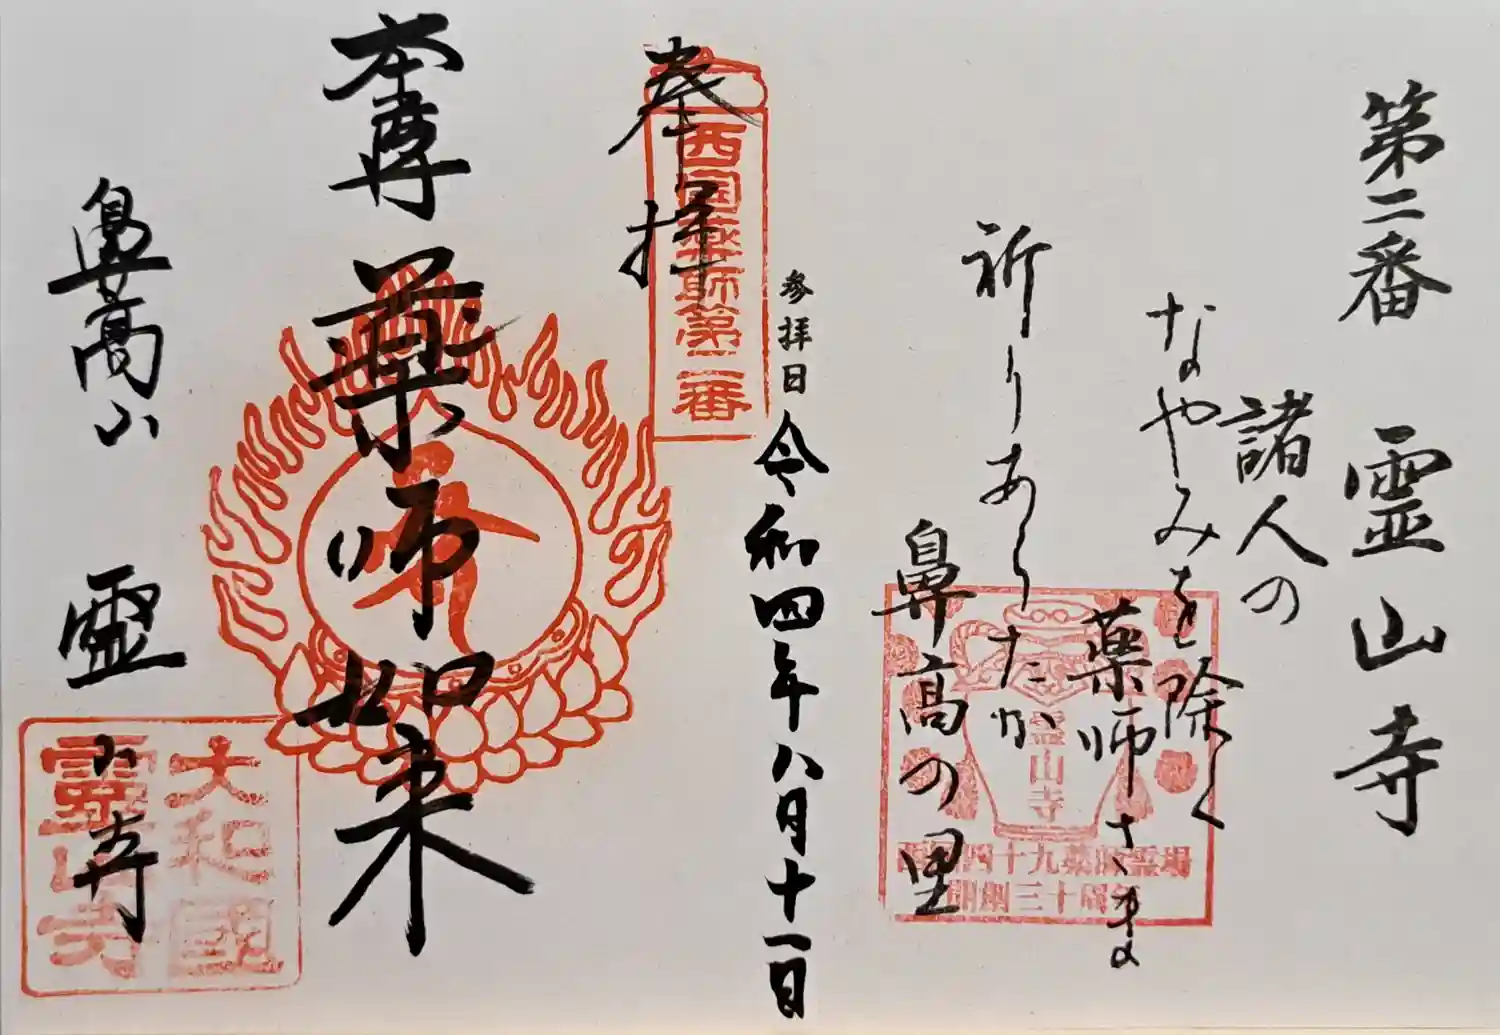 第二番 霊山寺
諸人の
なやみを除く
薬師さま
祈りあらたか
鼻高の里
西国四十九薬師霊場
開創三十周年
霊山寺
参拝日 令和四年八月十一日
奉拝
西国薬師第二番
本尊 薬師如来
鼻高山 霊山寺
大和國
霊山寺